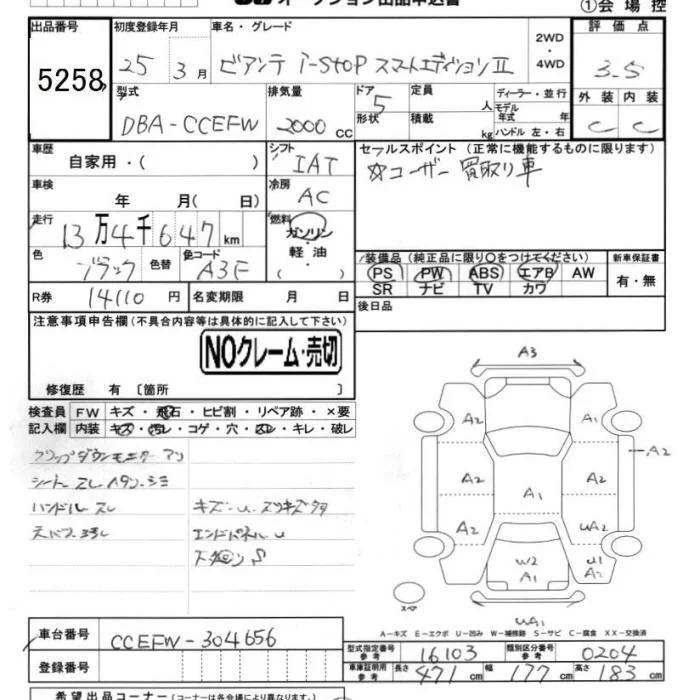 オークション出品申込書
①会場控
出品番号 初度登録年月 車名・グレード 評価点
5258 25年 3月 ビアンテ i-STOP スマートエディションII 2WD・4WD 3.5
型式 排気量 ドア 定員 ディーラー・並行 外装 内装
DBA-CCEFW 2000 CC 5 人 モデル年式 年 C C
形状 積載 kg ハンドル 左・右
車歴 シフト セールスポイント(正常に機能するものに限ります)
自家用・( ) IAT ☆ユーザー買取り車
車検 冷房
年 月( 日) AC
走行 燃料
13万4千647km ガソリン・軽油・( )
色 色替 色コード 装備品(純正品に限り○をつけてください) 新車保証書
ブラック A3F PS PW ABS エアB AW 有・無
SR ナビ TV カワ
R券 14110円 名変期限 月 日 後日品
注意事項申告欄(不具合内容等は具体的に記入して下さい)
NOクレーム・売切
修復歴 有〔箇所 〕
検査員 FW キズ・飛石・ヒビ割・リペア跡・×要
記入欄 内装 キズ・汚レ・コゲ・穴・スレ・キレ・破レ
フリップダウンモニター アリ
シート スレ ヘタリ シミ
ハンドル スレ キズ・u・スリキズ タタ
天バリ ヨゴレ エンドパネル u
下廻り S
A3
A2 A1
A2
A2 A2
A1
A2 uA2
W2 u1
A1 A2
スペア
uA1
A-キズ E-エクボ U-凹み W-補修跡 S-サビ C-腐食 XX-交換済
車台番号 CCEFW-304656
型式指定番号 参考 16103 類別区分番号 参考 0204
登録番号 車庫証明用 参考 長さ 471cm 幅 177cm 高さ 183cm
希望出品コーナー(コーナーは各会場により異なります。)